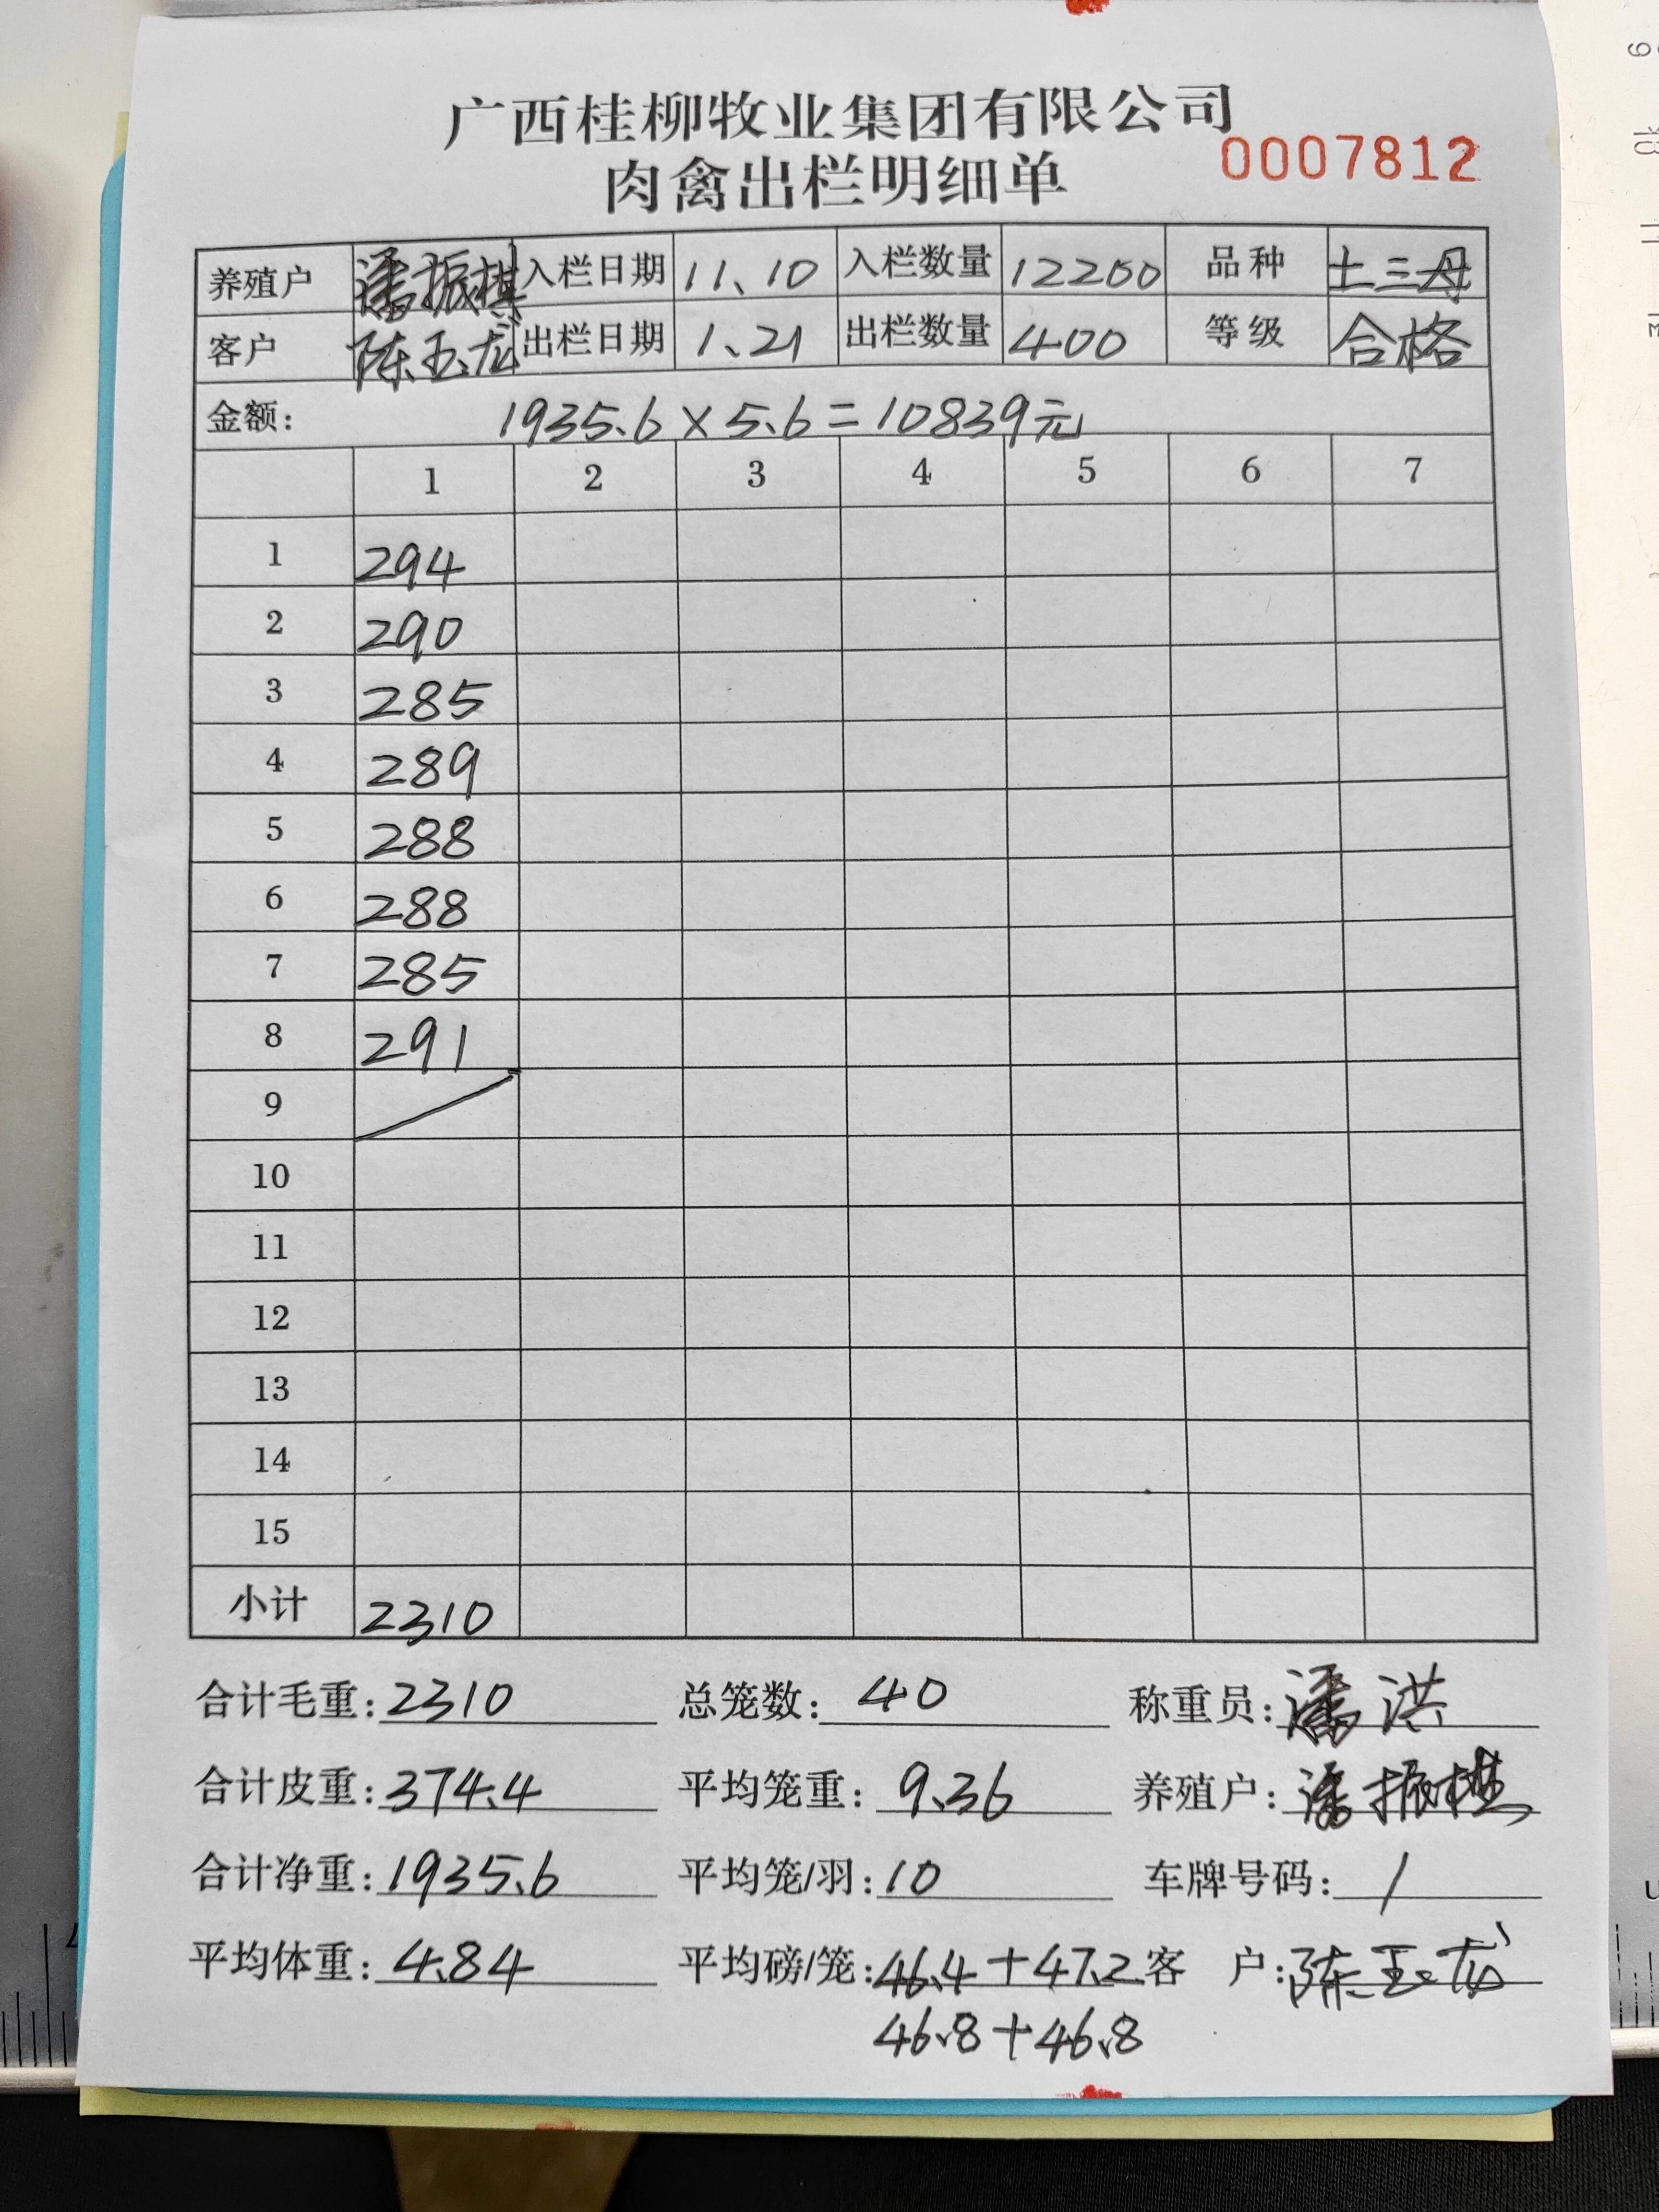 广西桂柳牧业集团有限公司
肉禽出栏明细单 0007812
养殖户 潘振棋 入栏日期 11、10 入栏数量 12200 品种 土三母
客户 陈玉龙 出栏日期 1、21 出栏数量 400 等级 合格
金额: 1935.6×5.6=10839元
1 2 3 4 5 6 7
1 294
2 290
3 285
4 289
5 288
6 288
7 285
8 291
9
10
11
12
13
14
15
小计 2310
合计毛重:2310 总笼数:40 称重员:潘洪
合计皮重:374.4 平均笼重:9.36 养殖户:潘振棋
合计净重:1935.6 平均笼/羽:10 车牌号码:/
平均体重:4.84 平均磅/笼:46.4+47.2 客 户:陈玉龙
46.8+46.8